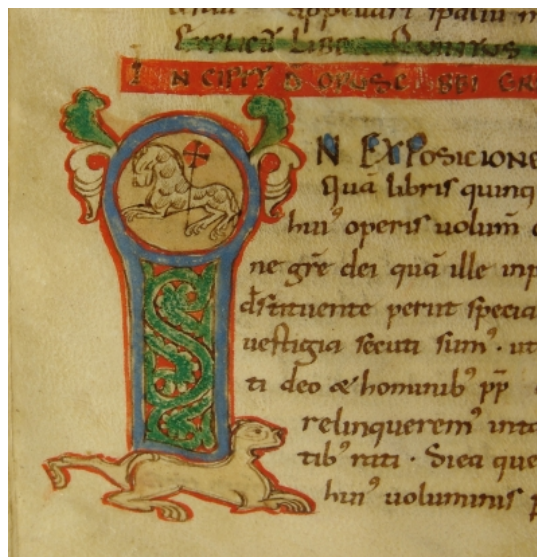 appellari spatiū
EXPLICIT LIBER QUINTUS
INCIPIT
IN EXPOSICIONE
Quā libris quinq
hui⁹ operis uolum̄
ne gr̄e dei quā ille inp
destituente perut specia
uestigia secuti sum⁹. ut
ti deo & hominib⁹ pp̄
relinquerem⁹ inta
tib⁹ rati. Sica que
hui⁹ uoluminis p